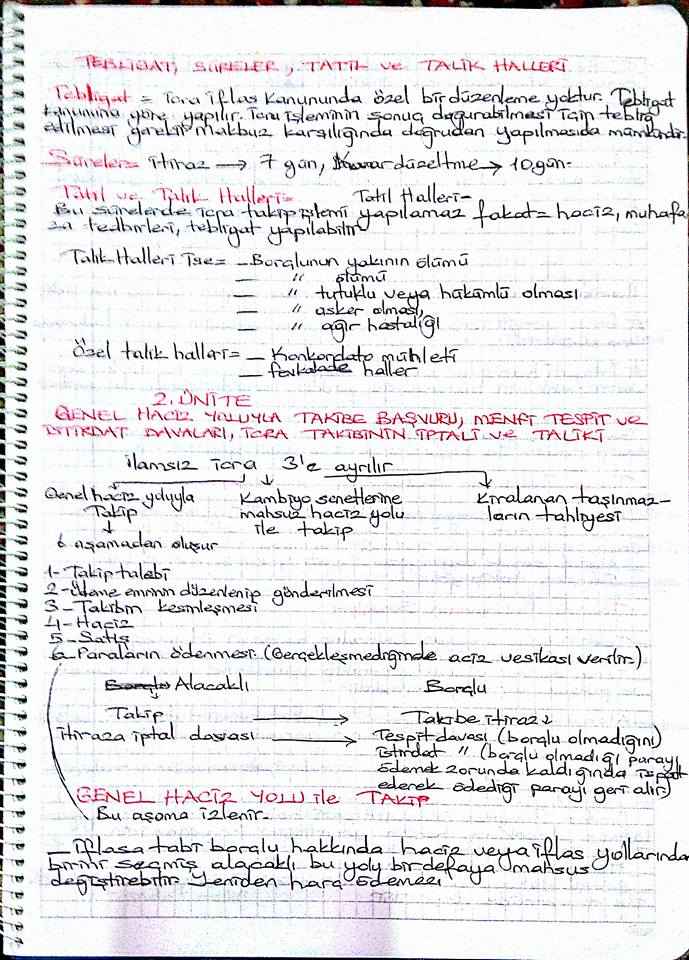 TEBLİGAT, SÜRELER, TATİL ve TALİK HALLERİ
Tebligat = İcra iflas Kanununda özel bir düzenleme yoktur. Tebligat
kanununa göre yapılır. İcra işleminin sonuç doğurabilmesi için tebliğ
edilmesi gerekir makbuz karşılığında doğrudan yapılmasıda mümkündür.
Süreler= itiraz → 7 gün, Karar düzeltme → 10 gün-
Tatil ve Talik Halleri= Tatil Halleri-
Bu sürelerde icra takip işlemi yapılamaz fakat= haciz, muhafa
za tedbirleri, tebligat yapılabilir
Talik Halleri ise= - Borçlunun yakının ölümü
— " ölümü
— " tutuklu veya hükümlü olması
— " asker olması
— " ağır hastalığı
Özel talik halleri= — Konkordato mühleti
— fevkalade haller
2. ÜNİTE
GENEL HACİZ YOLUYLA TAKİBE BAŞVURU, MENFİ TESPİT ve
İSTİRDAT DAVALARI, İCRA TAKİBİNİN İPTALİ ve TALİKİ
ilamsız icra 3'e ayrılır
Genel haciz yoluyla Kambiyo senetlerine Kiralanan taşınmaz-
Takip mahsus haciz yolu ların tahliyesi
↓ ile takip
6 aşamadan oluşur
1- Takip talebi
2- Ödeme emrinin düzenlenip gönderilmesi
3- Takibin kesinleşmesi
4- Haciz
5- Satış
6- Paraların ödenmesi (Gerçekleşmediğinde aciz vesikası verilir)
Borçlu Alacaklı Borçlu
Takip → Takibe itiraz ↓
itiraza iptal davası → Tespit davası (borçlu olmadığını)
istirdat " (borçlu olmadığı parayı
ödemek zorunda kaldığında ispat
ederek ödediği parayı geri alır)
GENEL HACİZ YOLU ile TAKİP
Bu aşama izlenir-
— İflasa tabi borçlu hakkında haciz veya iflas yollarından
birini seçmiş alacaklı bu yolu bir defaya mahsus
değiştirebilir. Yeniden harç ödemez